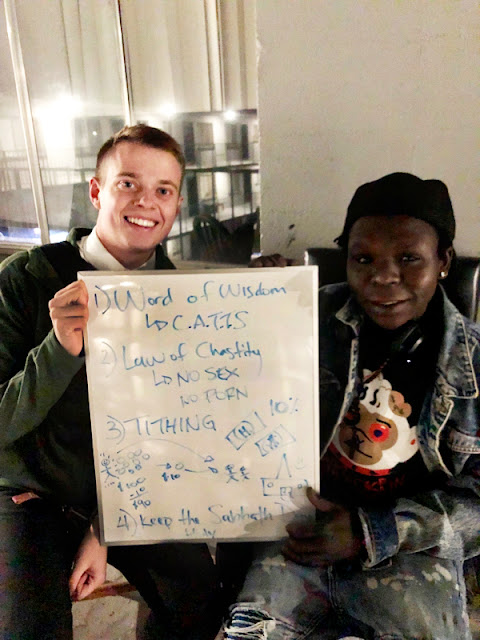 1) Word of Wisdom
↳ C.A.T.I.S
2) Law of Chastity
↳ NO SEX
NO PORN
3) TITHING
10%
$100
-10
$90
$10
4) Keep the Sabbath